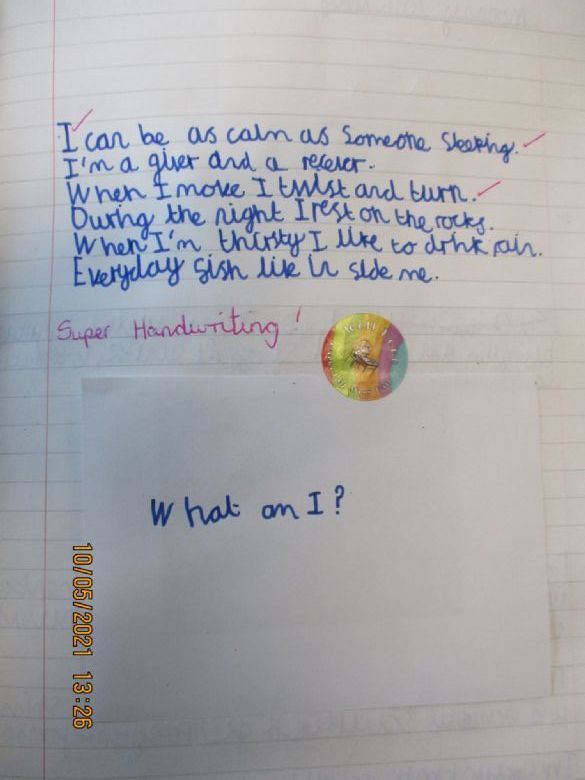 I can be as calm as Someone Sleeping.
I'm a giver and a reserver.
When I move I twist and turn.
During the night I rest on the rocks.
When I'm thirsty I like to drink rain.
Everyday fish live in side me.
Super Handwriting!
What am I?
10/05/2021 13:26